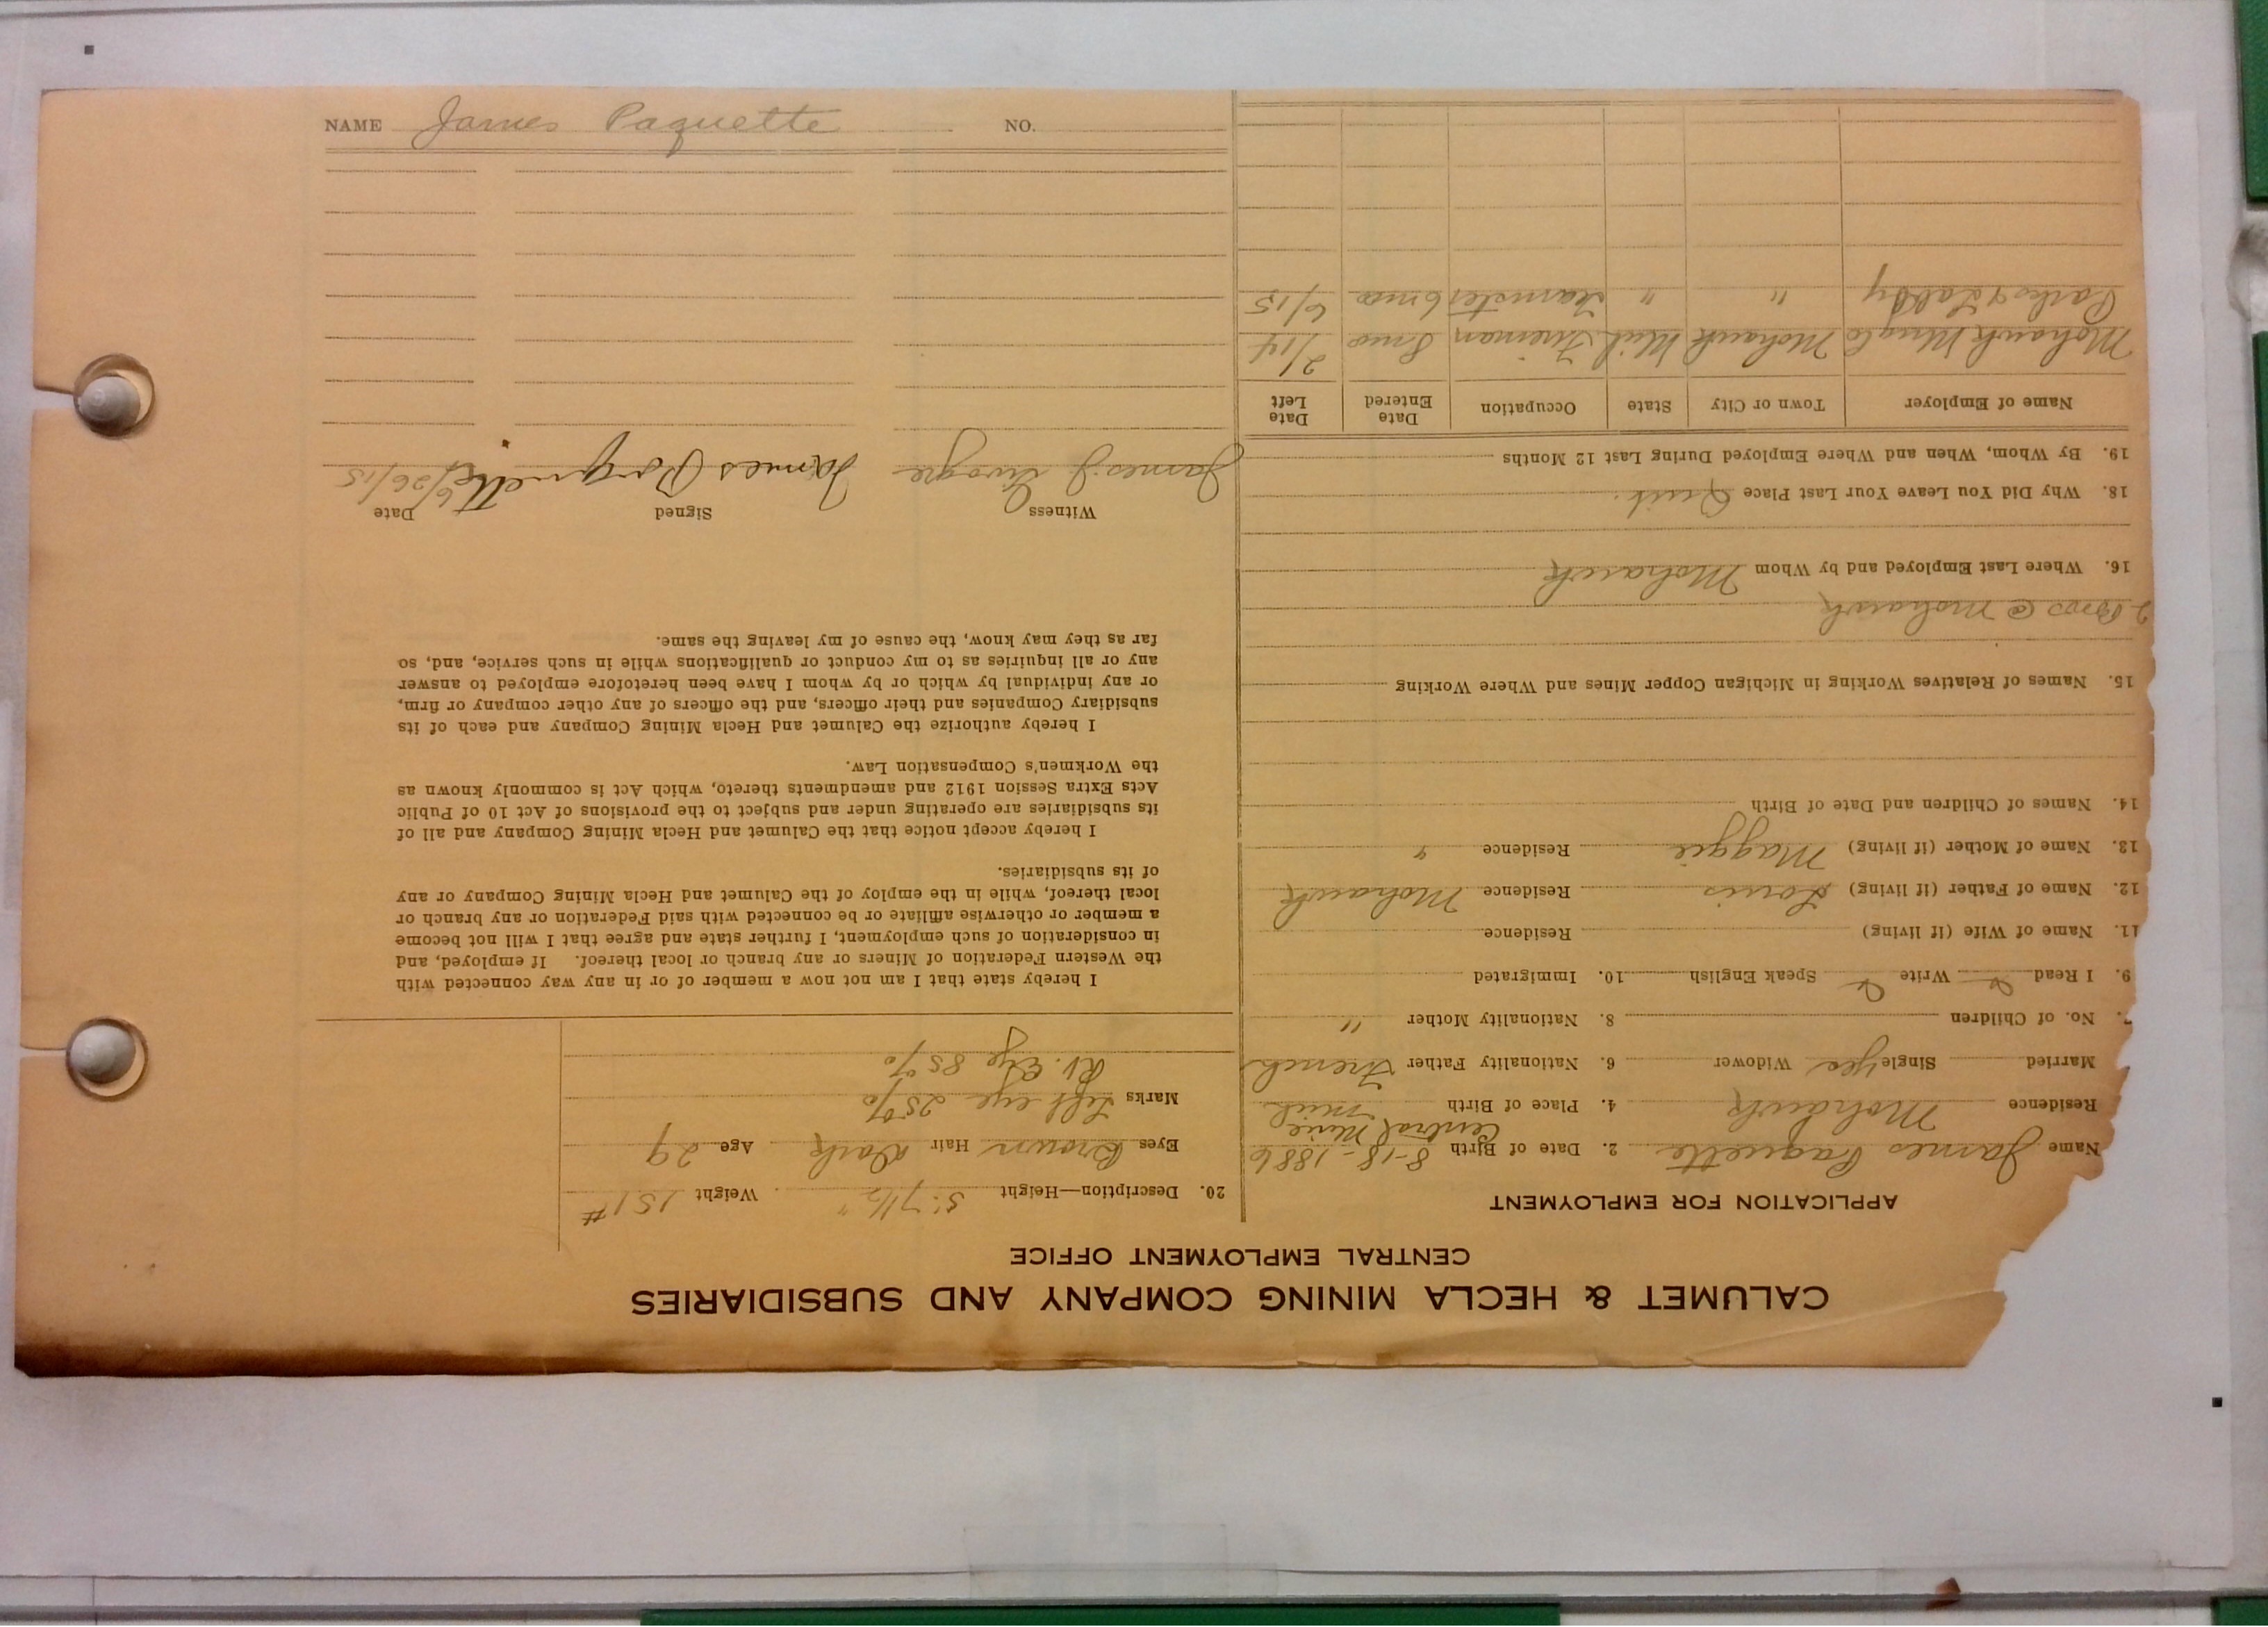 CALUMET & HECLA MINING COMPANY AND SUBSIDIARIES
CENTRAL EMPLOYMENT OFFICE
APPLICATION FOR EMPLOYMENT
Name James Paquette 2. Date of Birth 8-18-1886
Central Mine
Residence Mohawk 4. Place of Birth Mich
Married Single yes Widower 6. Nationality Father French
7. No. of Children 8. Nationality Mother "
9. I Read Write Speak English 10. Immigrated
11. Name of Wife (if living) Residence
12. Name of Father (if living) Louis Residence Mohawk
13. Name of Mother (if living) Maggie Residence "
14. Names of Children and Date of Birth
15. Names of Relatives Working in Michigan Copper Mines and Where Working
2 Bros @ Mohawk
16. Where Last Employed and by Whom Mohawk
18. Why Did You Leave Your Last Place Quit.
19. By Whom, When and Where Employed During Last 12 Months
Name of Employer Town or City State Occupation Date Entered Date Left
Mohawk Mng Co Mohawk Mich Fireman 8 mos 2/14
" " Teamster 6 mos 6/15
20. Description—Height 5'7 1/2" Weight 151#
Eyes Brown Hair Dark Age 29
Marks Left eye 25%
Rt. Eye 85%
I hereby state that I am not now a member of or in any way connected with
the Western Federation of Miners or any branch or local thereof. If employed, and
in consideration of such employment, I further state and agree that I will not become
a member or otherwise affiliate or be connected with said Federation or any branch or
local thereof, while in the employ of the Calumet and Hecla Mining Company or any
of its subsidiaries.
I hereby accept notice that the Calumet and Hecla Mining Company and all of
its subsidiaries are operating under and subject to the provisions of Act 10 of Public
Acts Extra Session 1912 and amendments thereto, which Act is commonly known as
the Workmen's Compensation Law.
I hereby authorize the Calumet and Hecla Mining Company and each of its
subsidiary Companies and their officers, and the officers of any other company or firm,
or any individual by which or by whom I have been heretofore employed to answer
any or all inquiries as to my conduct or qualifications while in such service, and, so
far as they may know, the cause of my leaving the same.
Witness Signed Date
James J. James Paquette 6/26/15
NAME James Paquette NO.